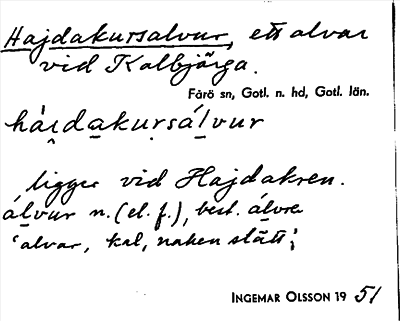 Hajdakursalvur, ett alvar
vid Kalbjärga.
Fårö sn, Gotl. n. hd, Gotl. län.
hái̯dakursálvur
ligger vid Hajdakren.
álvur n. (el. f.), best. álvre
'alvar, kal, naken slätt';
INGEMAR OLSSON 19 51